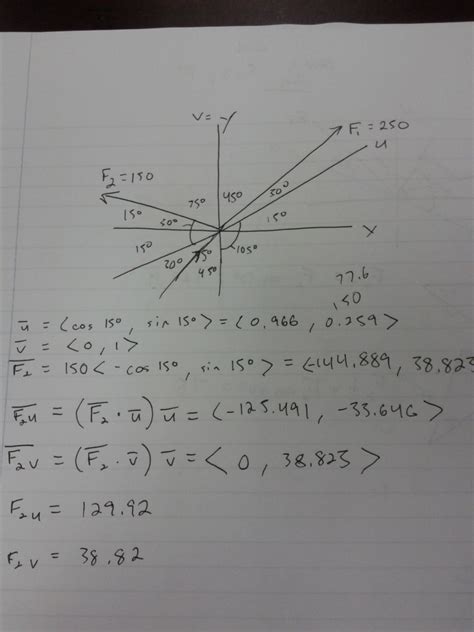 V = -y
F₁ = 250
u
F₂ = 150
75° 45° 30°
15° 30° 15° x
15° 105°
20° 15°
45°
77.6
150
ū = ⟨cos 15°, sin 15°⟩ = ⟨0.966, 0.259⟩
v̄ = ⟨0, 1⟩
F̄₂ = 150⟨-cos 15°, sin 15°⟩ = ⟨-144.889, 38.823
F̄₂u = (F̄₂ · ū) ū = ⟨-125.491, -33.646⟩
F̄₂v = (F̄₂ · v̄) v̄ = ⟨0, 38.823⟩
F₂u = 129.92
F₂v = 38.82